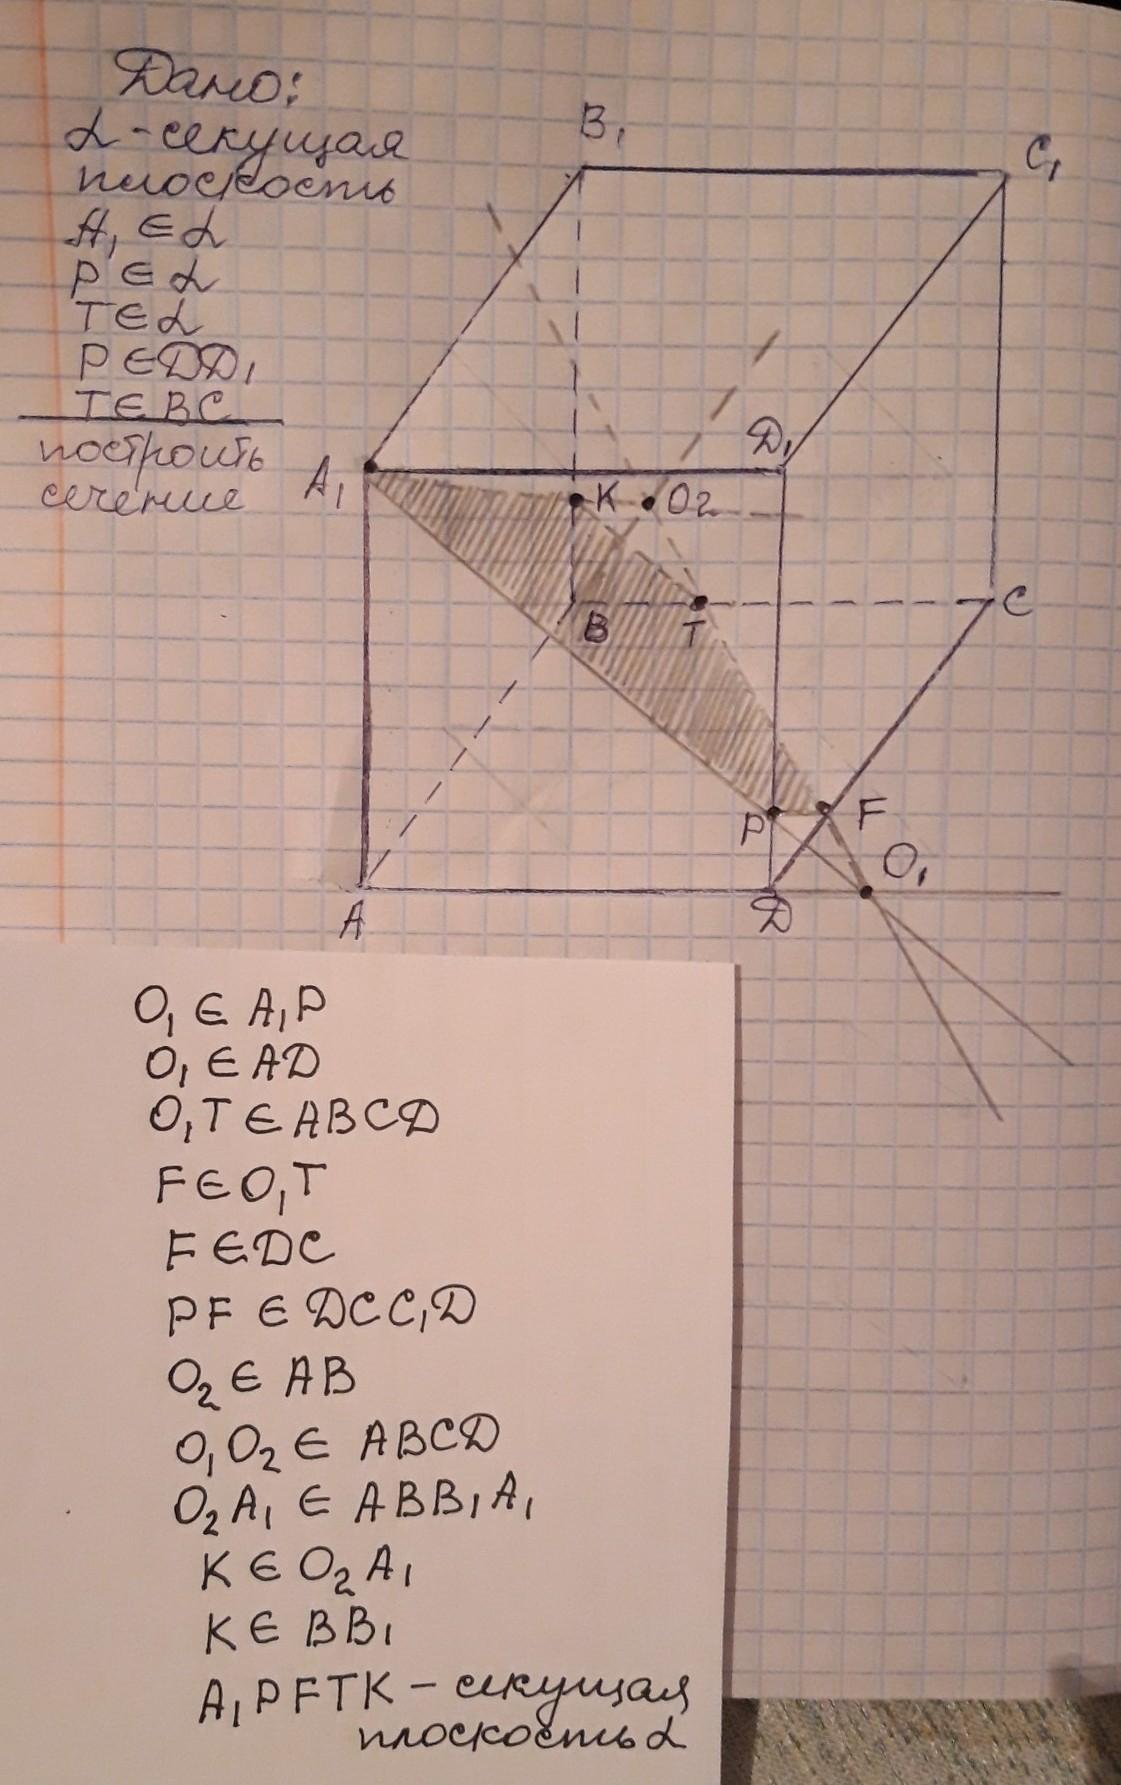 Дано:
α-секущая
плоскость
A₁ ∈ α
P ∈ α
T ∈ α
P ∈ DD₁
T ∈ BC
построить
сечение
B₁
C₁
A₁
D₁
K
O₂
B
T
C
P
F
O₁
A
D
O₁ ∈ A₁P
O₁ ∈ AD
O₁T ∈ ABCD
F ∈ O₁T
F ∈ DC
PF ∈ DCC₁D
O₂ ∈ AB
O₁O₂ ∈ ABCD
O₂A₁ ∈ ABB₁A₁
K ∈ O₂A₁
K ∈ BB₁
A₁PFTK – секущая
плоскость α